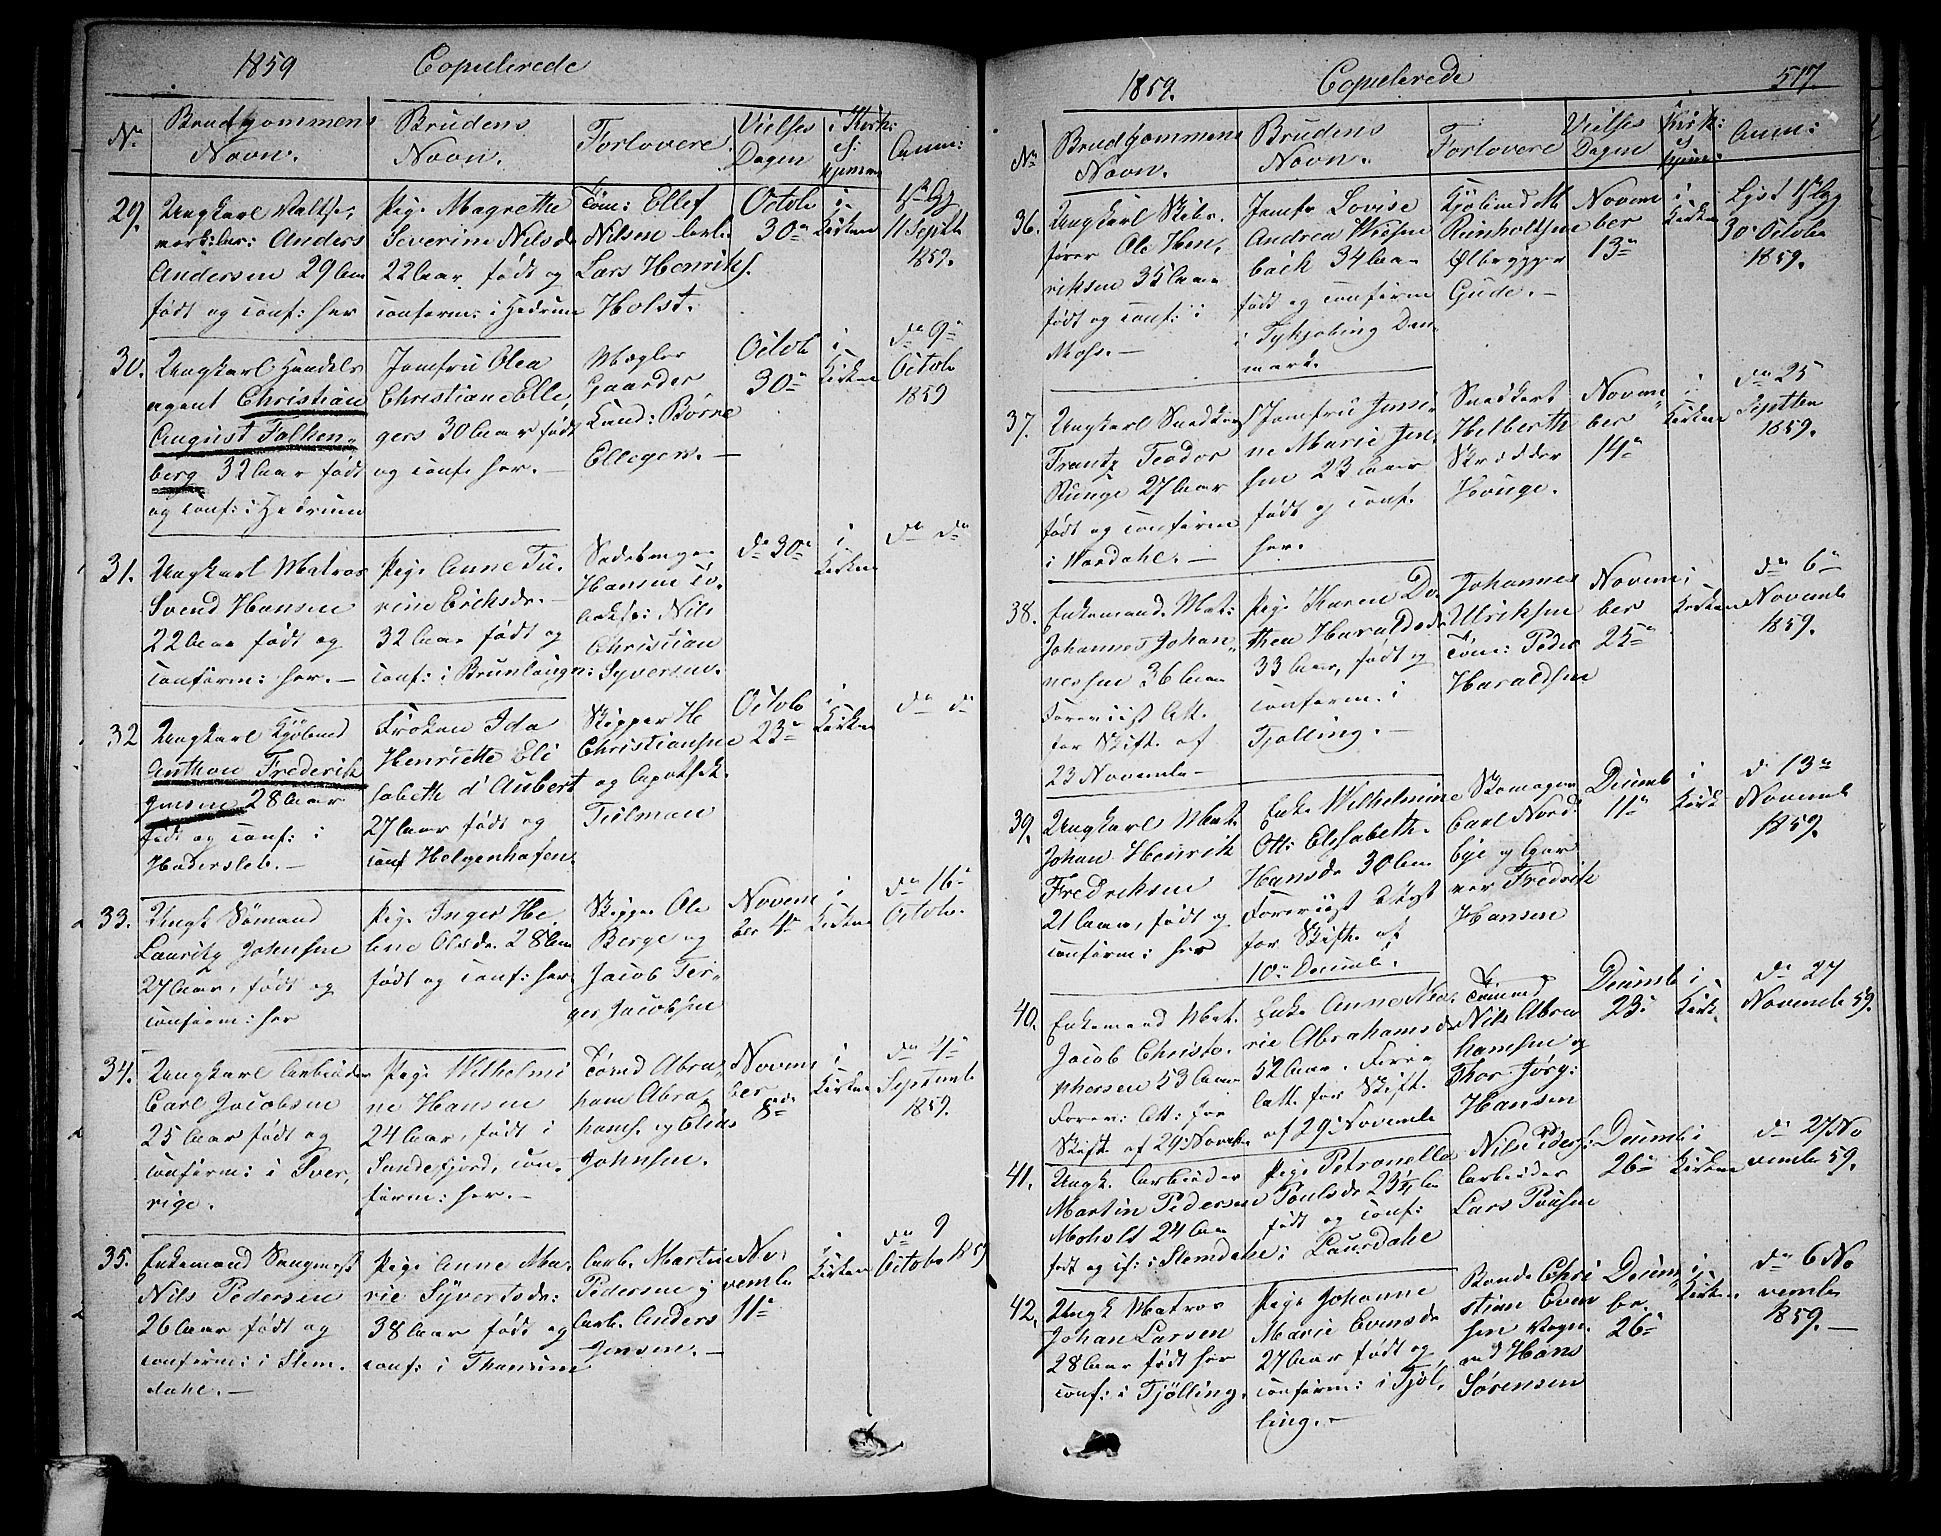 1859
Copulerede
No.
Brudgommens
Navn.
Brudens
Navn.
Forlovere.
Vielses
Dagen
i Kirke:
ei:
hjemme
Anm:
29.
Ungkarl
Anders
Andersen 29 Aar
født og conf: her
Pige Magrethe
Severine Nilsdr
22 Aar født og
conferm: i Hedrum
Tøm: Ellef
Nilsen Arb.
Lars Henriks.
Holst.
Octob
30te
i
Kirken
1ste Lyg
11 Septb
1859.
30.
Ungkarl Handels
agent Christian
August Falken-
berg 32 Aar født
og conf: i Hedrum
Jomfru Olea
Christiane Elle,
gers 30 Aar født
og conf her.-
Mægler
Gaarder
Cand: Børre
Elleger.-
Octob
30te
i
Kirken
do 9de
Octob
1859
31.
Ungkarl Matros
Svend Hansen
22 Aar født og
conferm: her.-
Pige Anne Tu-
rine Eriksdr.-
32 Aar født og
conf: i Brunlaugn:
Hansen
Nils
Christian
Syversen.
do 30te
i
Kirken
do do
32
Ungkarl Kjøbmd
Anthon Frederik
Jensen 28 Aar
født og conf: i
Hadersleb.-
Frøken Ida
Henriette Eli
sabeth d'Aubert
27 Aar født og
conf Helgenhafen
Skipper H
Christiansen
og Apothek.
Tielman
Octob
23de
i
Kirken
do do
33.
Ungk Sømand
Lauritz Johnsen
27 Aar, født og
conferm: her
Pige Inger He,
line Olsdr 28 Aar
født og conf: her
Skipper Ole
Berge og
Jacob Ter-
ger Jacobsen
Novem
ber 4de
i
Kirken
do 16de
Octobr.
34.
Ungkarl Arbeider
Carl Jacobsen
25 Aar født og
conferm: i Sver,
rige.
Pige Wilhelmi
ne Hansen
24 Aar, født i
Sandefjord, con,
firm: her.-
Tømd Abra,
ham Abra,
hams. og Elias
Johnsen.
Novem
ber
8de
i
Kirken
do 4de
Septemb
1859.
35.
Enkemand Saugmest
Nils Pedersen
26 Aar født og
conferm: i Slem-
dahl.-
Pige Anne Ma,
rie Syvertsdr:
38 Aar født og
conf: i Thanum
Arb. Martin
Pedersen og
Arb. Anders
Jensen.-
No,
vemb
11te
i
Kirken
do 9
Octobr 1859
1859.
Copulerede
517.
No
Brudgommens
Navn.
Brudens
Navn.
Forlovere
Vielses
Dagen
Kirk:
ei
hjem:
Anm:
36.
Ungkarl Skibs-
fører Ole Hen,
riksen 35 Aar
født og conf: i
Moss.-
Jomfr Lovise
Andrea
34 Aar
født og conferm
i Nykjøbing Dan,
mark.
Kjøbmd M
Reinholtsen
Ølbrygger
Gude.-
Novem
ber
13de
i
Kirken
Lyst 1ste Lyg
30 Octobr
1859.
37.
Ungkarl Snedker
Frantz Teodor
Runge 27 Aar
født og conferm
i Vardahl.-
Jomfru Jensi-
ne Marie Jen,
sen 23 Aar
født og conf.
her.
Snedker
Helberth
Skrædder
Houge.
Novem-
ber
14de
i
Kirken
do 25
Septbr
1859.
38.
Enkemand. Mat:
Johannes Johan-
nessen 36 Aar
Foreviist Att.
for Skift. af
23 Novemb-
Pige Karen Do,
thea Haraldsdr
33 Aar, født og
conferm: i
Tjølling.-
Johannes
Ulriksen
Tøm: Peder
Haraldsen
Novem
ber
25de
i
Kirken
do 6te
Novemb
1859.
39.
Ungkarl Mat.
Johan Henrik
Fredriksen
21 Aar, født og
conferm: her
Enke Wilhelmine
Ott: Elisabeth.
Hansdr 30 Aar
Foreviist Attest
for Skift. af
10de Decemb.
Skomager
Carl Nord
bye og Gar
ver Fredrik
Hansen
Decemb
11te
i
Kirk
do 13de
Novemb
1859.
40.
Enkemand Mat.
Jacob Christo,
phersen 53 Aar
Forev: Att: for
Skift af 29 Novemb
Enke Anne Ma,
rie Abrahamsdr
52 Aar. Forev
Att. for Skift.
af 29 Novemb
Tømmd
Nils Abra
hamsen og
Thor Jørg:
Hansen
Decemb
23.
i
Kirk.
do 27
Novemb 59.
41.
Ungk. Arbeider
Martin Pedersen
Moholt 24 Aar
født og cf: i Slemdahl
Pige Petronella
Poulsdr 23 1/4 Aar
født og conf:
i Laurdahl
Nils Peders:
Arbeider
Lars Poulsen
Decemb
26de
i
Kirken
do 27 No
vemb 59.
42.
Ungk Matros
Johan Larsen
28 Aar født her
conf: i Tjølling.
Pige Johanne
Marie Evensdr
27 Aar født og
conferm: i Tjøl,
ling.-
Bonde Chri
stian Even
sen Vogn.
md Hans
Sørensen
Decem,
br.
26de
i
Kirken
do 6 No
vemb
1859.-